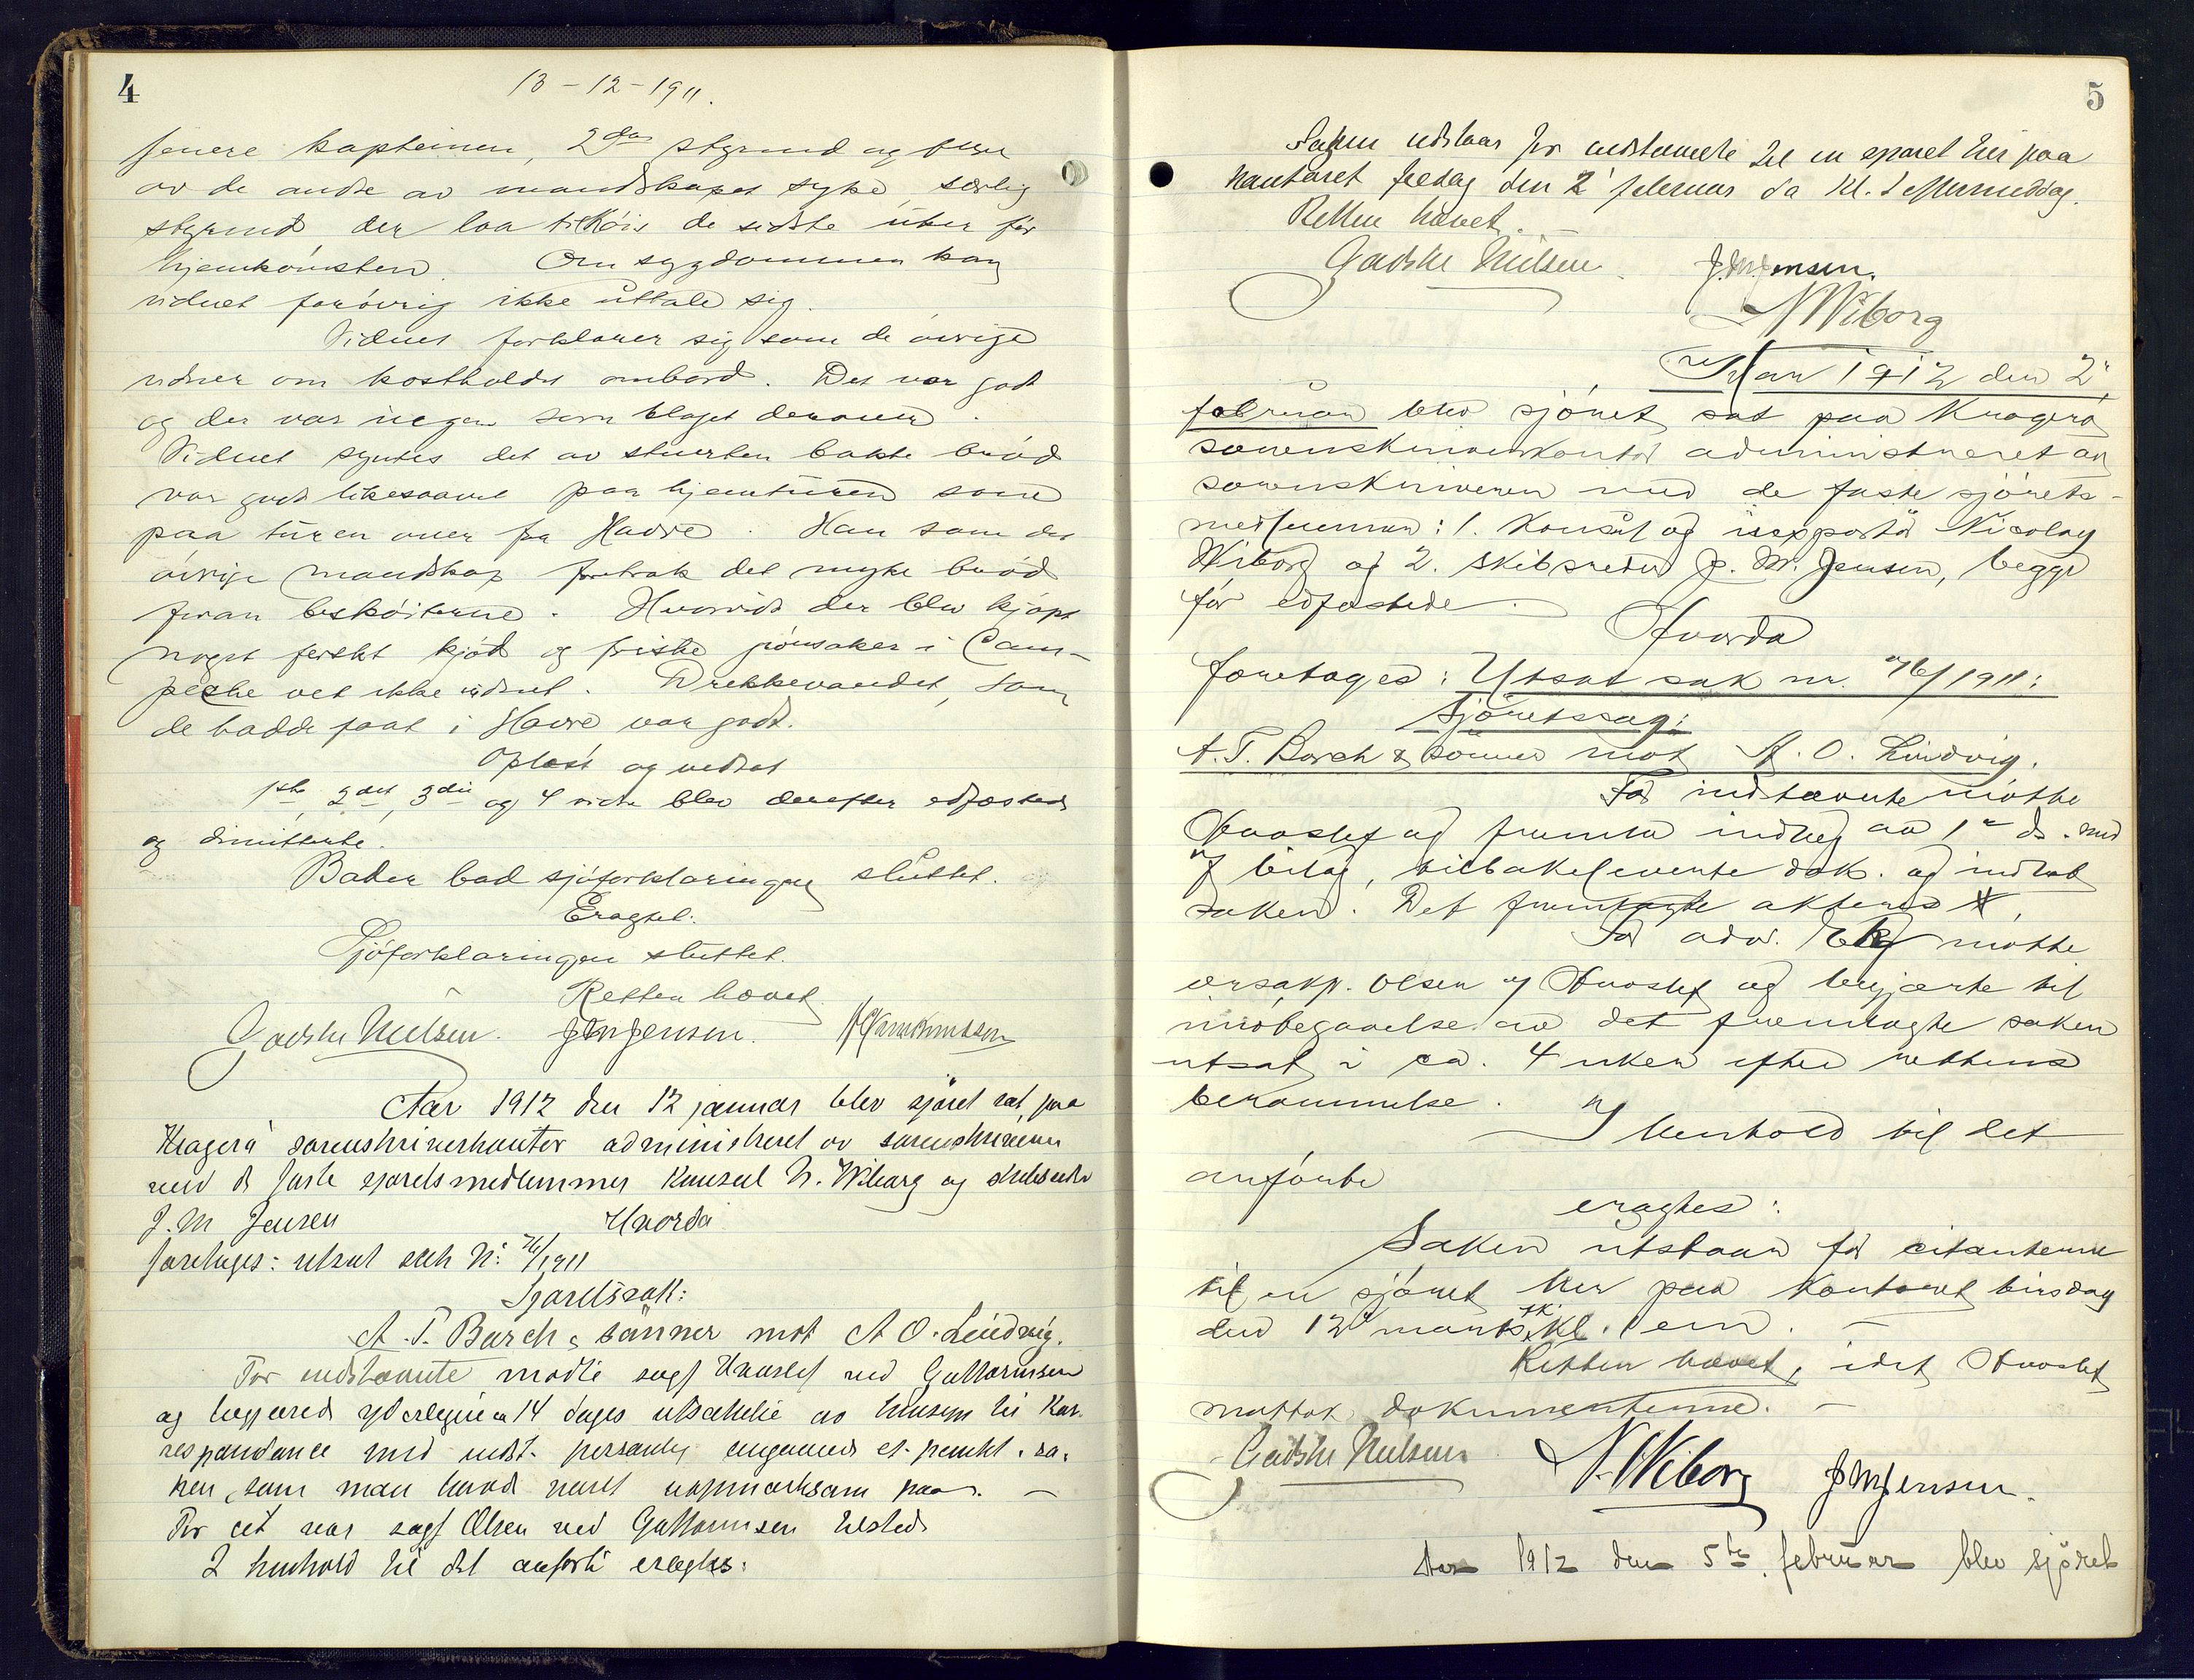 4
13-12-1911.
senere kapteinen, 2den styrmd og flere
av de andre av mandskapet syke, særlig
styrmd, der laa tilkøis de sidste uker før
hjemkomsten. Om sygdommen kan
vidnet forøvrig ikke uttale sig.
Vidnet forklarer sig som de øvrige
vidner om kostholdet ombord. Det var godt
og der var ingen som klaget derover.
Vidnet syntes det av stuerten bakte brød
var godt likesaavel paa hjemturen som
paa turen over fra Havre. Han som det
øvrige mandskap foretrak det myke brød
fran beskøiterne. Hvorvidt der blev kjøpt
noget ferskt kjød og friske grønsaker i Cam-
peche vet ikke vidnet. Drikkevandet, som
de hadde faat i Havre var godt.
Oplæst og vedtat
1ste, 2det, 3die og 4 vidne blev derefter edfæstede
og dimitterte.
Bader bad sjøforklaringen sluttet.
Eragtet:
Sjøforklaringen sluttet.
Retten hævet
Gadske Nielsen. J M Jensen.
Aar 1912 den 12 januar blev sjøret sat paa
Kragerø sorenskriverkontor administreret av sorenskriveren
med de faste sjøretsmedlemmer Konsul N. Wiborg og skibsreder
J. M Jensen Hvorda
foretages: utsat sak No 76/1911
Sjøretssak:
A. T. Barch & sønner mot A O. Lindvig.
For indstævnte mødte sagf Knoslef ved Guttormsen
og begjæred yderligere 14 dages utsættelse av hensyn til Kor-
respondance med indst. personlig angaaende et punkt i sa-
ken, som man havde været uopmerksom paa. —
For cit var sagf Olsen ved Guttormsen tilstede
I henhold til det anførte eragtes:
5
Saken udstaar for indstævnte til en sjøret her paa
kontoret fredag den 2' februar da Kl. 1 eftermiddag.
Retten hævet. —
Gadske Nielsen. J. M. Jensen.
N Wiborg
Aar 1912 den 2'
februar blev sjøret sat paa Kragerø
sorenskriverkontor administreret av
sorenskriveren med de faste sjørets-
medlemmer: 1. Konsul og iseksportør Nicolay
Wiborg og 2. skibsreder J. M. Jensen, begge
før edfæstede.
Hvorda
foretages: Utsat sak nr. 76/1911:
Sjøretssag:
A. T. Borch & sønner mot A. O. Lindvig.
For indstævnte møtte
og fremla indlæg av 1' ds. med
bilag, tilbakeleverte dok. og indlot
saken. Det fremlagte akteres
For adv. møtte
oversakf. Olsen og begjærte til
imøtegaaelse av det fremlagte saken
utsat i ca. 4 uker efter rettens
berammelse.
I henhold til det
anførte
eragtes:
Saken utstaar for citanterne
til en sjøret her paa kontoret tirsdag
den 12' marts fk. kl. 1 em. —
Retten hævet, idet
mottok dokumenterne. —
Gadske Nielsen N. Wiborg J M Jensen.
Aar 1912 den 5te februar blev sjøret